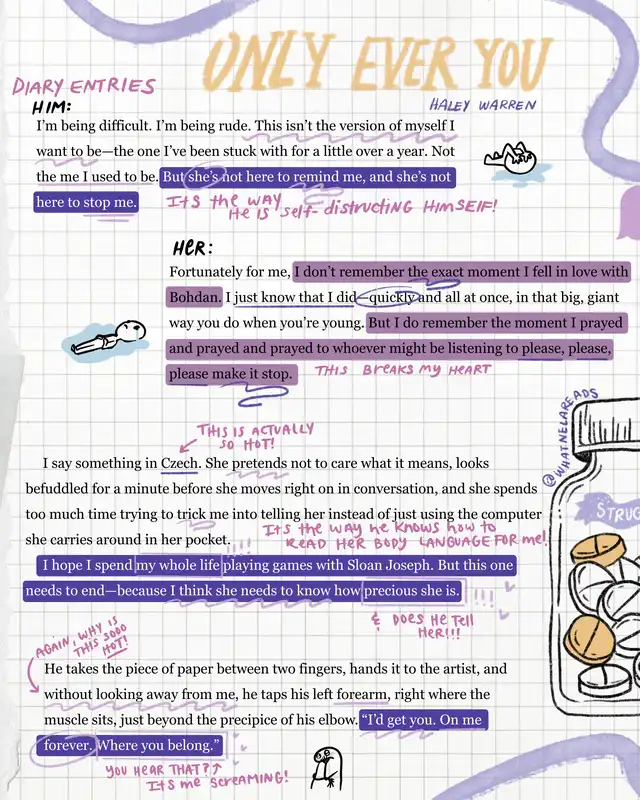 ONLY EVER YOU
HALEY WARREN
DIARY ENTRIES
HIM:
I'm being difficult. I'm being rude. This isn't the version of myself I
want to be—the one I've been stuck with for a little over a year. Not
the me I used to be. But she's not here to remind me, and she's not
here to stop me.
ITS THE WAY
HE IS SELF-DISTRUCTING HIMSELF!
HER:
Fortunately for me, I don't remember the exact moment I fell in love with
Bohdan. I just know that I did—quickly and all at once, in that big, giant
way you do when you're young. But I do remember the moment I prayed
and prayed and prayed to whoever might be listening to please, please,
please make it stop.
THIS BREAKS MY HEART
@WHATNELAREADS
STRUG
THIS IS ACTUALLY
SO HOT!
I say something in Czech. She pretends not to care what it means, looks
befuddled for a minute before she moves right on in conversation, and she spends
too much time trying to trick me into telling her instead of just using the computer
she carries around in her pocket.
ITS THE WAY HE KNOWS HOW TO
READ HER BODY LANGUAGE FOR ME!
I hope I spend my whole life playing games with Sloan Joseph. But this one
needs to end—because I think she needs to know how precious she is.
!!!
!!!
& DOES HE TELL
HER!!!
AGAIN, WHY IS
THIS SOOO
HOT!
He takes the piece of paper between two fingers, hands it to the artist, and
without looking away from me, he taps his left forearm, right where the
muscle sits, just beyond the precipice of his elbow. "I'd get you. On me
forever. Where you belong."
YOU HEAR THAT?↑
ITS ME SCREAMING!